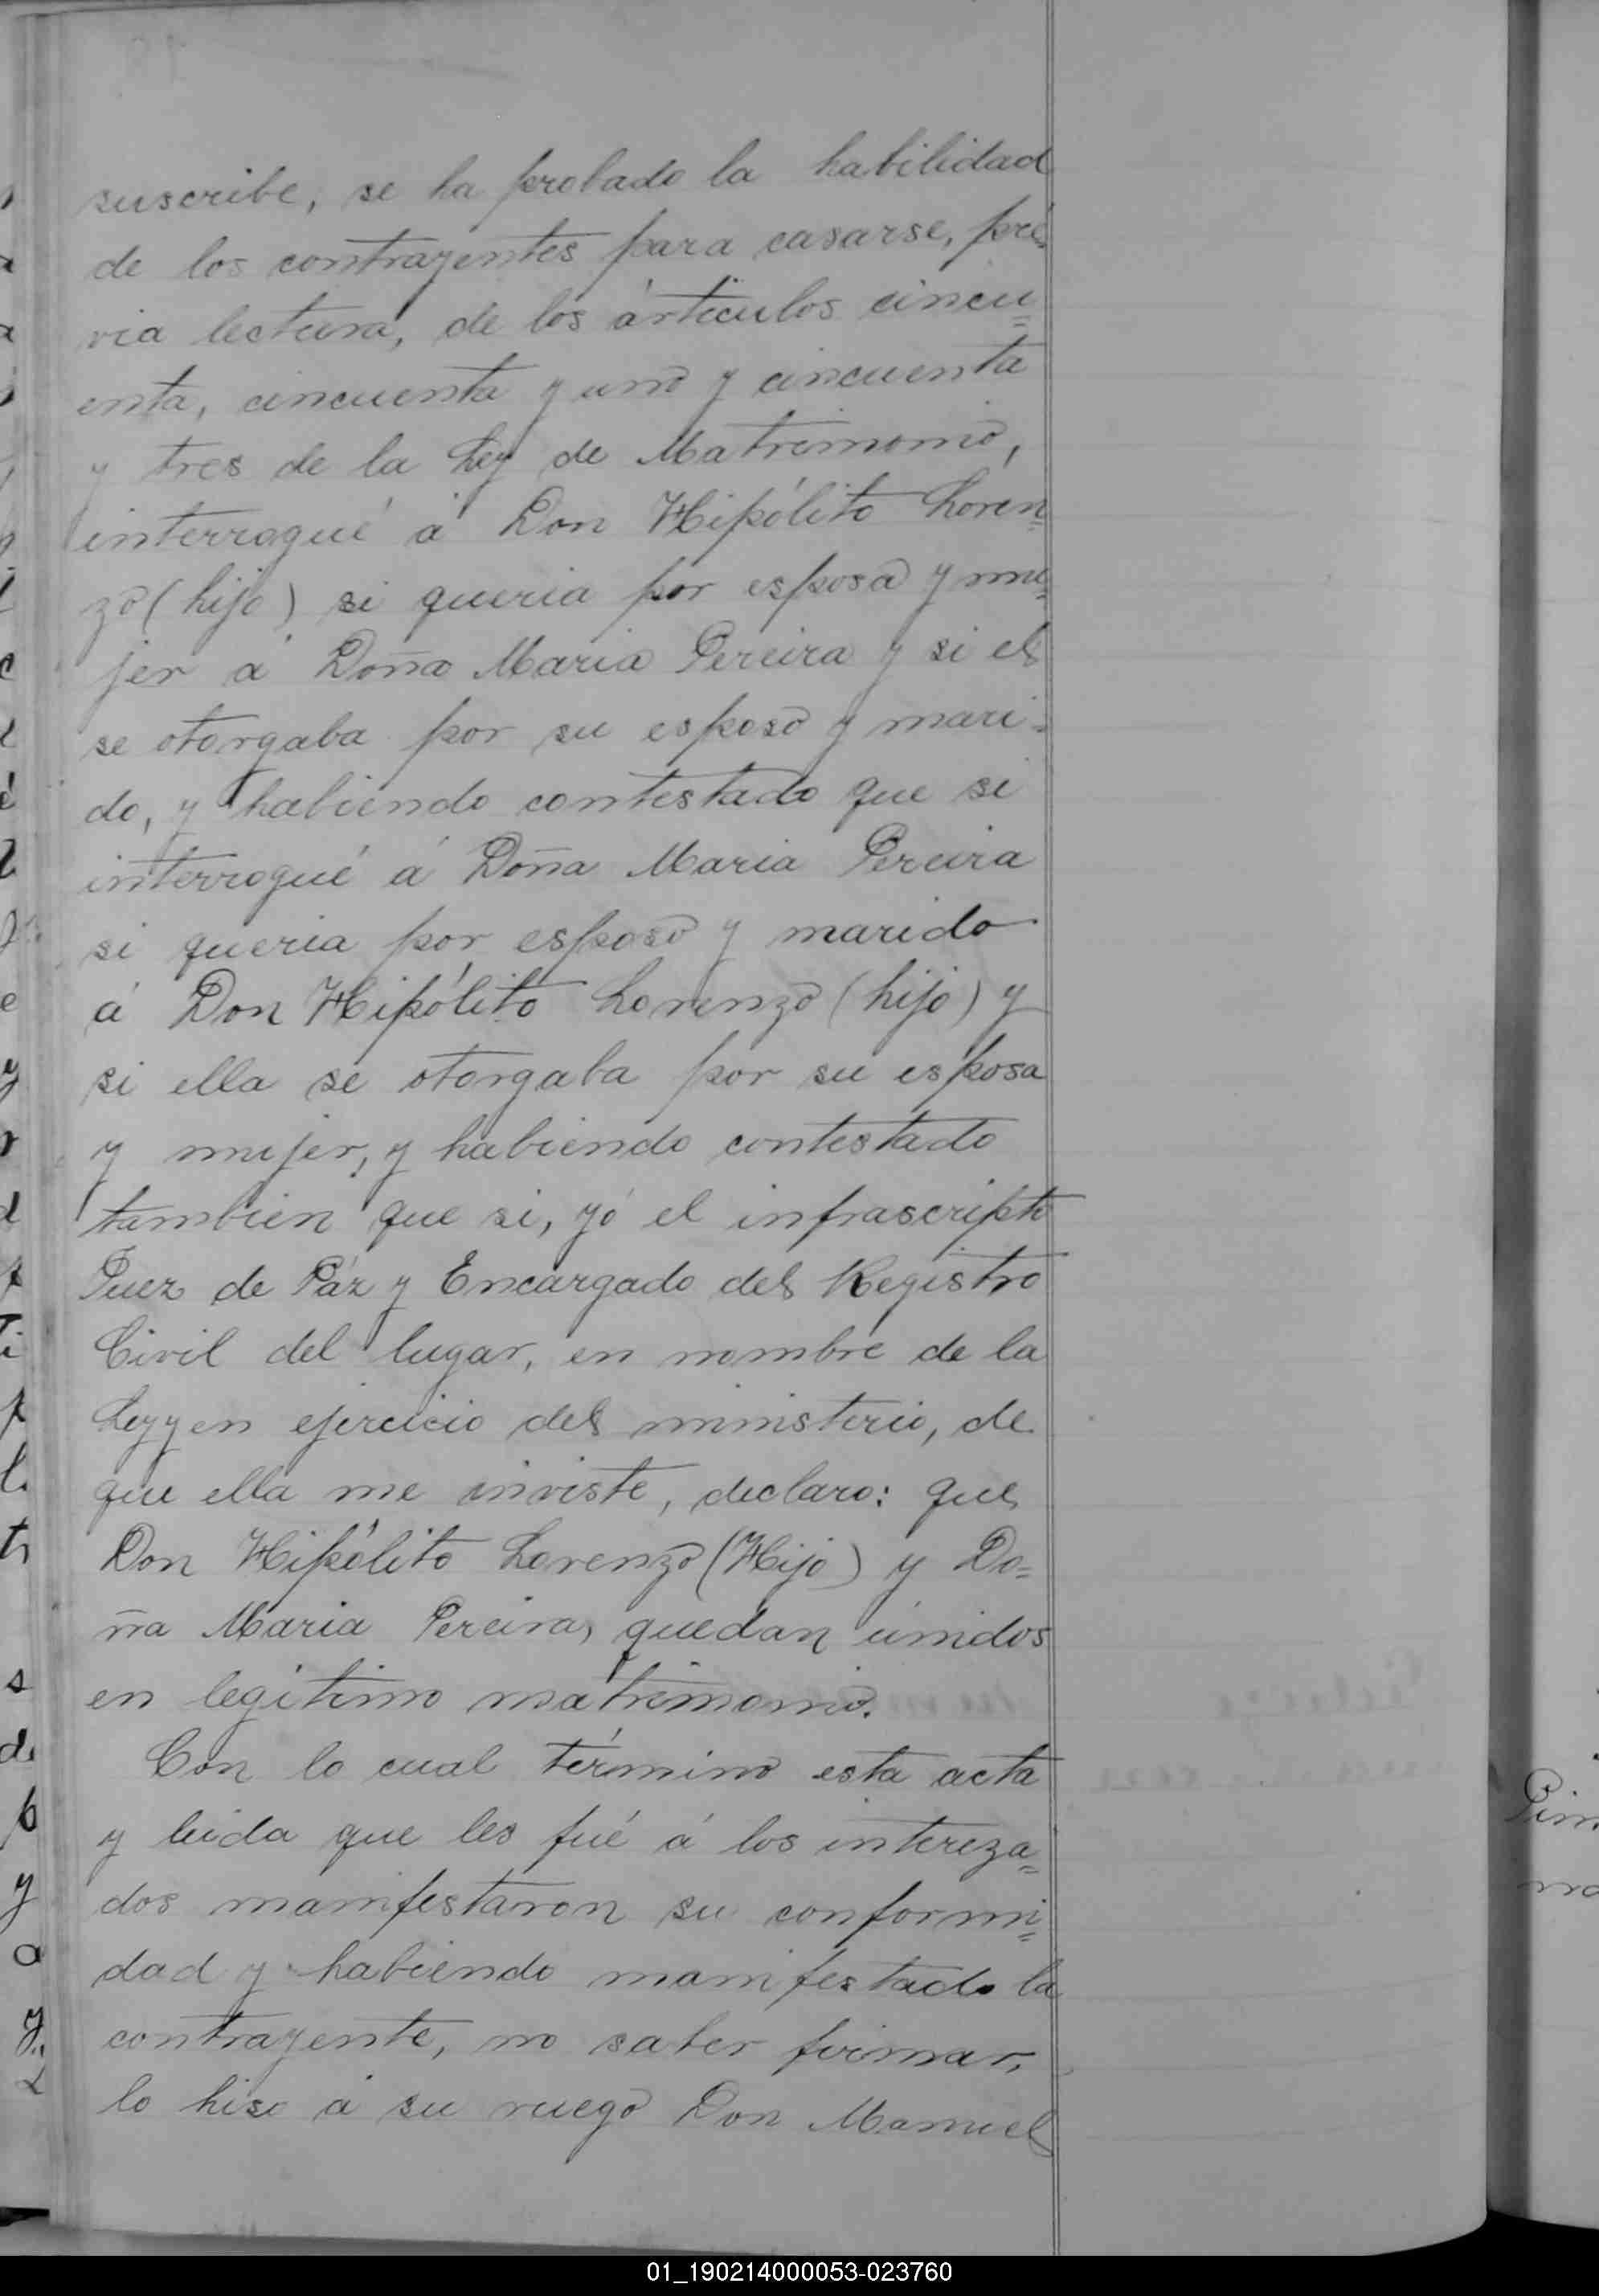 suscribe, se ha probado la habilidad
de los contrayentes para casarse, pré-
via lectura, de los ártículos cincu=
enta, cincuenta y uno y cincuenta
y tres de la Ley de Matrimonio,
interrogué á Don Hipólito Loren=
zo (hijo) si queria por esposa y mu=
jer á Doña Maria Pereira y si el
se otorgaba por su esposo y mari-
do, y habiendo contestado que si
interrogué á Doña Maria Pereira
si queria por esposo y marido
á Don Hipólito Lorenzo (hijo) y
si ella se otorgaba por su esposa
y mujer, y habiendo contestado
tambien que si, yó el infrascripto
Juez de Páz y Encargado del Registro
Civil del lugar, en nombre de la
Ley y en ejercicio del ministerio, de
que ella me inviste, declaro: que
Don Hipólito Lorenzo (Hijo) y Do=
ña Maria Pereira, quedan únidos
en legítimo matrimonio.
Con lo cual término esta acta
y leida que les fué á los intereza=
dos manifestaron su conformi=
dad y habiendo manifestado la
contrayente, no saber firmar,
lo hiso á su ruego Don Manuel
01_190214000053-023760